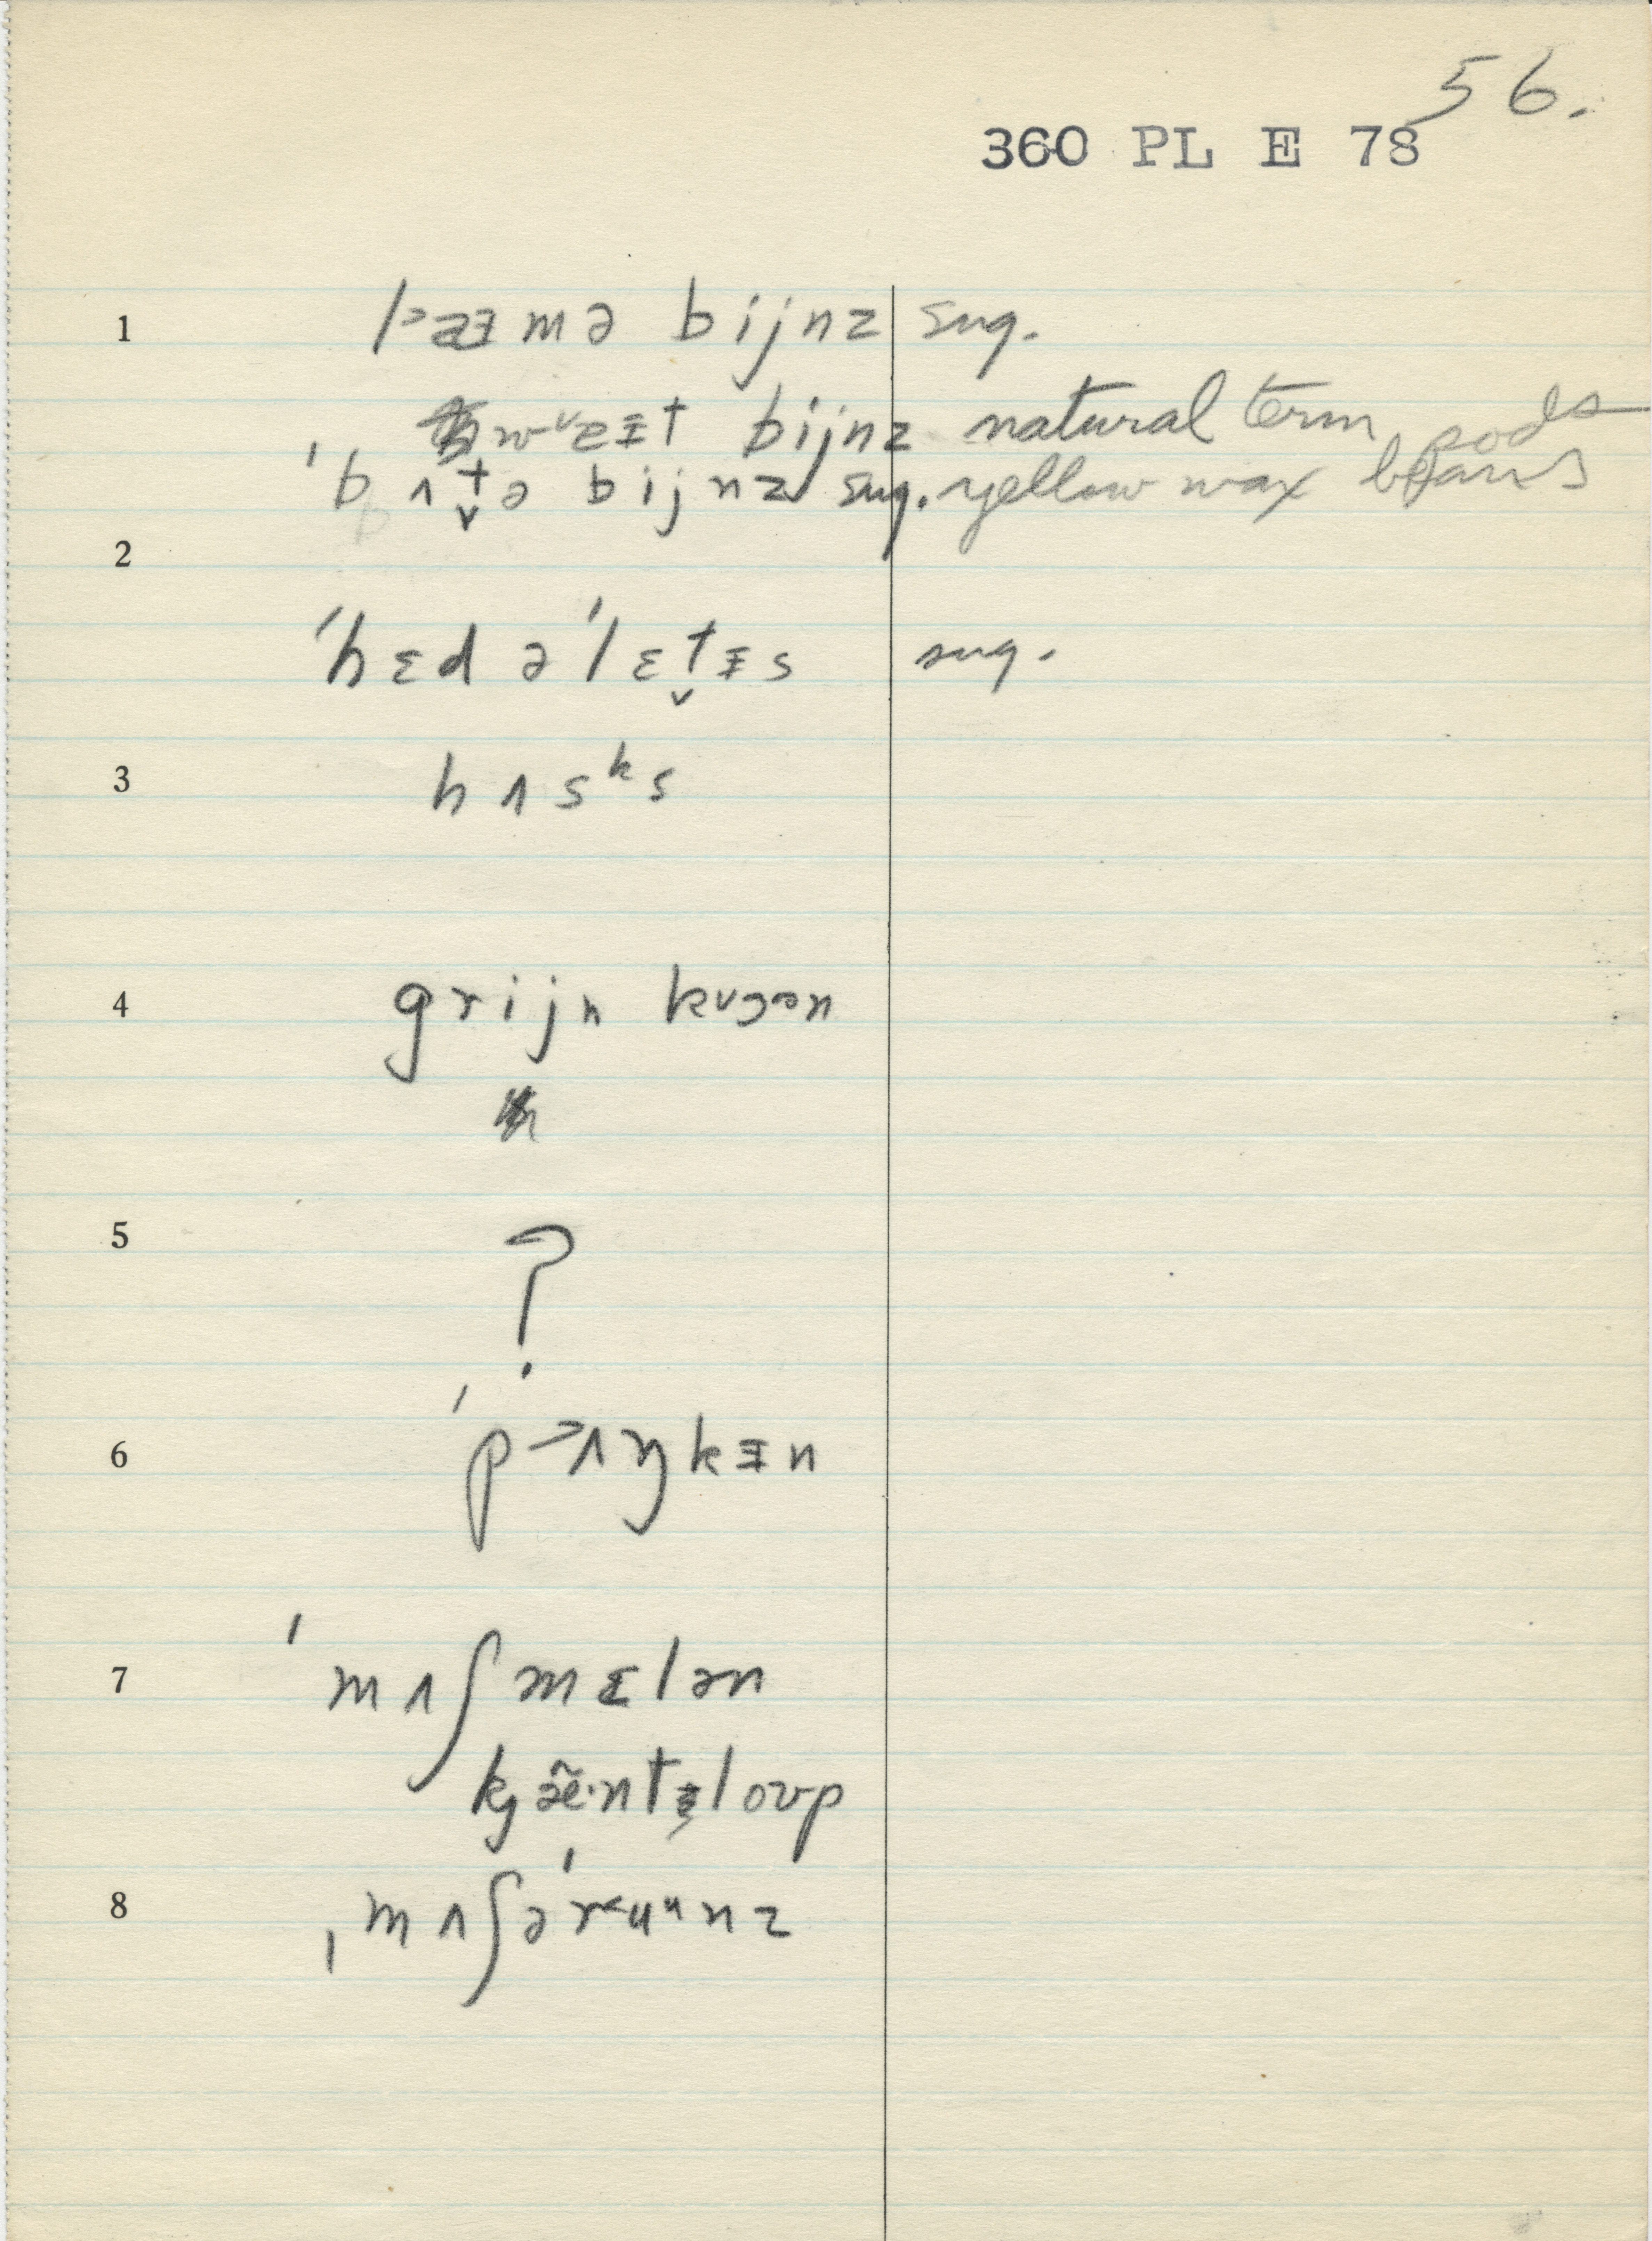 56.
360 PL E 78
1 l>æmə bijnz sug.
bijnz natural term pods
ˈbʌt̬ə bijnz sug. yellow wax beans
2
ˈhɛd əˈlɛt̬ɪs sug.
3 hʌsᵏs
4 grijn
5 ?
6 ˈp>ʌŋkɪn
7 ˈmʌʃmɛlən
kj æ̃·ntəloʊp
8 ˌmʌʃəˈr<uᵘnz